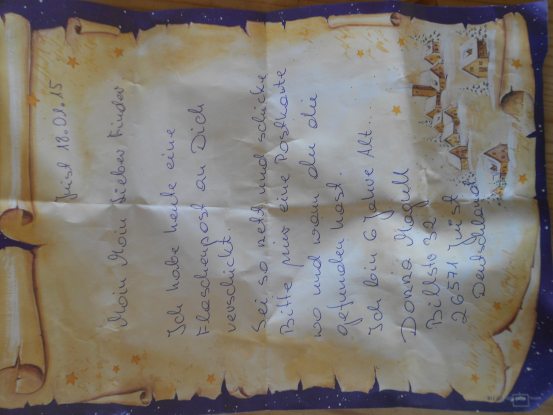 Juist 18.01.15
Moin Moin lieber Finder
Ich habe heute eine
Flaschenpost an Dich
verschickt.
Sei so nett und schicke
Bitte mir eine Postkarte
wo und wann du die
gefunden hast.
Ich bin 6 Jahre Alt...
Billstr 32
26571 Juist
Deutschland